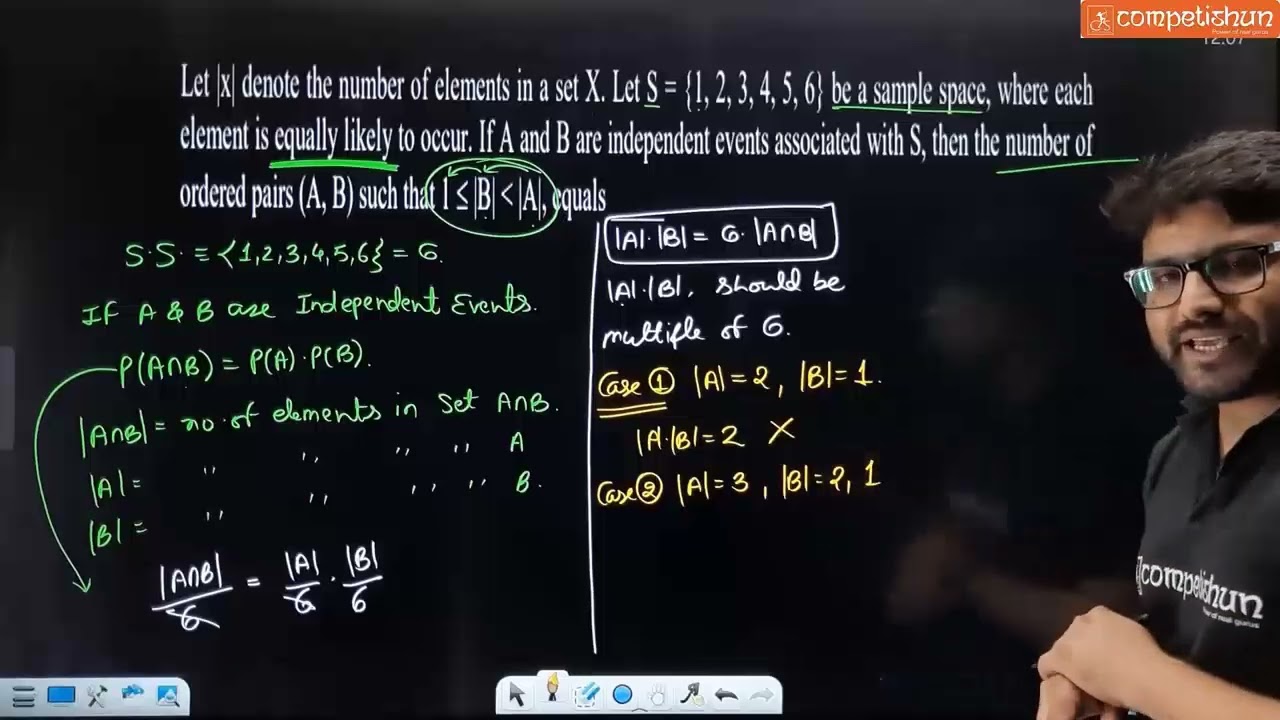 competishun
Power of real gurus
12:07
Let |x| denote the number of elements in a set X. Let S = {1, 2, 3, 4, 5, 6} be a sample space, where each
element is equally likely to occur. If A and B are independent events associated with S, then the number of
ordered pairs (A, B) such that 1 ≤ |B| < |A|, equals
S.S. ≡ {1,2,3,4,5,6} = 6.
If A & B are Independent Events.
P(A∩B) = P(A)·P(B).
|A∩B| = no. of elements in Set A∩B.
|A| = ,, ,, ,, ,, A
|B| = ,, ,, ,, ,, B.
|A∩B|/6 = |A|/6 · |B|/6
|A|·|B| = 6·|A∩B|
|A|·|B|, should be
multiple of 6.
Case ① |A| = 2, |B| = 1.
|A|·|B| = 2 ×
Case ② |A| = 3, |B| = 2, 1
competishun
Power of real gurus